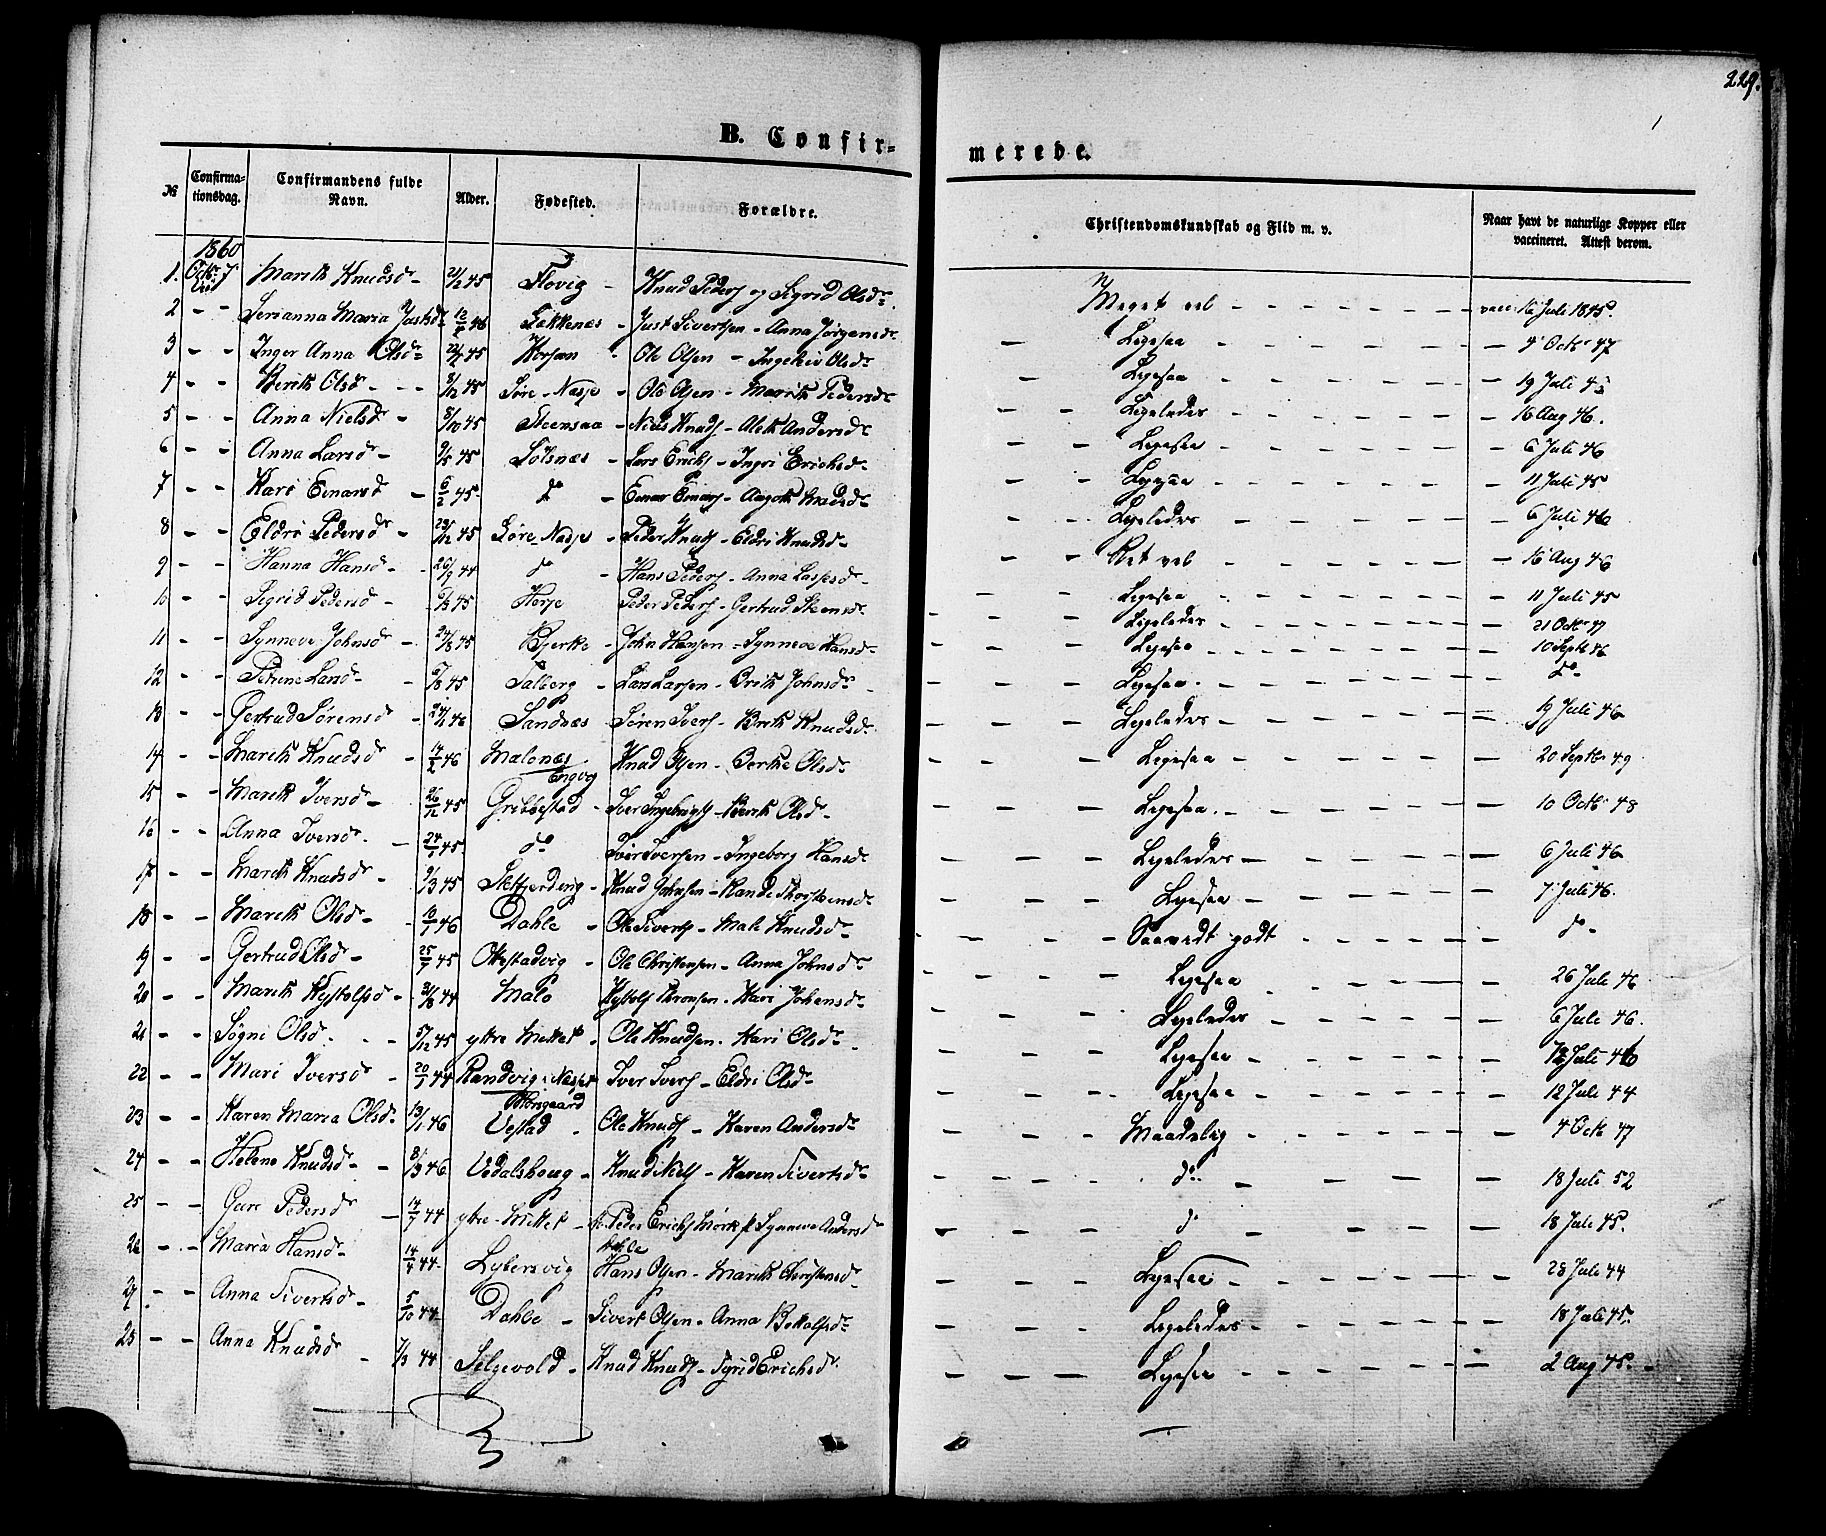 229.
B. Confirmerede.
№ | Confirmationsdag. | Confirmandens fulde Navn. | Alder. | Fødested. | Forældre. | Christendomskundskab og Flid m. v. | Naar havt de naturlige Kopper eller vaccineret. Attest derom.
1860
1. Octbr 7 | Marith Knudsdr | 21/12 45 | Flovig | Knud Peders og Sigrid Olsdr | Meget vel | vacc: 16 Juli 1845.
2 | Serianna Maria Justsdr | 46 | Bakkenes | Just Sivertsen - Anna Jørgensdr | Ligesaa | 4 Octr 47
3 | Inger Anna Olsdr | 45 | Korsan | Ole Olsen - Ingebor Olsdr | Ligesaa | 19 Juli 45
4 | Berith Olsd | 8/12 45 | Søre-Næsje | Ole Olsen - Marith Pedersdr | Ligeledes | 16 Aug 46.
5 | Anna Nielsd | 8/10 45 | Steensaa | Niels Knuds - Aleth Andersdr | Ligesaa | 6 Juli 46
6 | Anna Larsd | 9/5 45 | Sølsnæs | Lars Erichs - Ingri Erichsdr | Ligesaa | 11 Juli 45
7 | Kari Einarsd | 6/2 45 | do | Einar Einars - Aagoth Madsdr | Ligeledes | 6 Juli 46
8 | Eldri Pedersd | 23/12 45 | Søre-Næsje | Peder Knuds - Eldri Knudsdr | Ret vel | 16 Aug 46
9 | Hanna Hansd | 26/9 44 | do | Hans Peders - Anna Lassesdr | Ligesaa | 11 Juli 45
10 | Sigrid Pedersd | 45 | Horje | Peder Peders - Gertrud Steensdr | Ligeledes | 21 Octbr 47
11 | Synneve Johnsd | 24/8 45 | Bjerke | John Hansen - Synneve Hansdr | Ligesaa | 10 Septb 46
12 | Petrine Larsd | 45 | Talberg | Lars Larsen - Brith Johnsdr | Ligesaa | do
13 | Gertrud Sørensd | 46 | Sandnæs | Søren Ivers - Brith Knudsdr | Ligeledes | 19 Juli 46
14 | Marith Knudsd | 14/2 46 | Malonæs Engvig | Knud Olsen - Berthe Olsdr | Ligesaa | 20 Septbr 49
15 | Marith Iversd | 26/12 45 | Gribbestad | Iver Ingebrigts - Berith Olsdr | Ligesaa | 10 Octbr 48
16 | Anna Iversdr | 24/7 45 | do | Iver Iversen - Ingeborg Hansdr | Ligeledes | 6 Juli 46
17 | Marith Knudsd | 9/3 45 | | Knud Johnsen - Rande Thorsteinsdr | Ligesaa | 7 Juli 46.
18 | Marith Olsd | 10/1 46 | Dahle | Ole Siverts - Mali Knudsdr | Saavidt godt | do
19 | Gertrud Olsd | 25/7 45 | Ottestadvig | Ole Christensen - Anna Johnsdr | Ligesaa | 26 Juli 46
20 | Marith Kystolfsd | 44 | Malo | Kystolf Thronsen - Kari Johansdr | Ligeledes | 6 Juli 46.
21 | Søgni Olsd | 45 | yttre Mittet | Ole Knudsen - Kari Olsdr | Ligesaa | 12 Juli 46
22 | Mari Iversd | 20/1 44 | Randvig, Næsset | Iver Ivers - Eldri Olsdr | Ligesaa | 12 Juli 44
23 | Karen Maria Olsdr | 13/1 46 | Vestad | Ole Knuds - Karen Andersdr | Maadelig | 4 Octb 47
24 | Helene Knudsd | 8/3 46 | Vedalshoug | Knud Niels - Karen Sivertsdr | do | 18 Juli 52
25 | Guri Pedersd | 14/7 44 | yttre-Mittet | Peder Erichs Mork & Synneve Andersd Dahle | do | 18 Juli 45.
26 | Maria Hansd | 14/4 44 | Lybersvig | Hans Olsen - Marith Christensdr | Ligesaa | 28 Juli 44
27 | Anna Sivertsdr | 5/10 44 | Dahle | Sivert Olsen - Anna Bottolfsdr | Ligeledes | 18 Juli 45.
28 | Anna Knudsd | 7/3 44 | Selgevold | Knud Knuds - Sigrid Erichsdr | Ligesaa | 2 Aug 45.